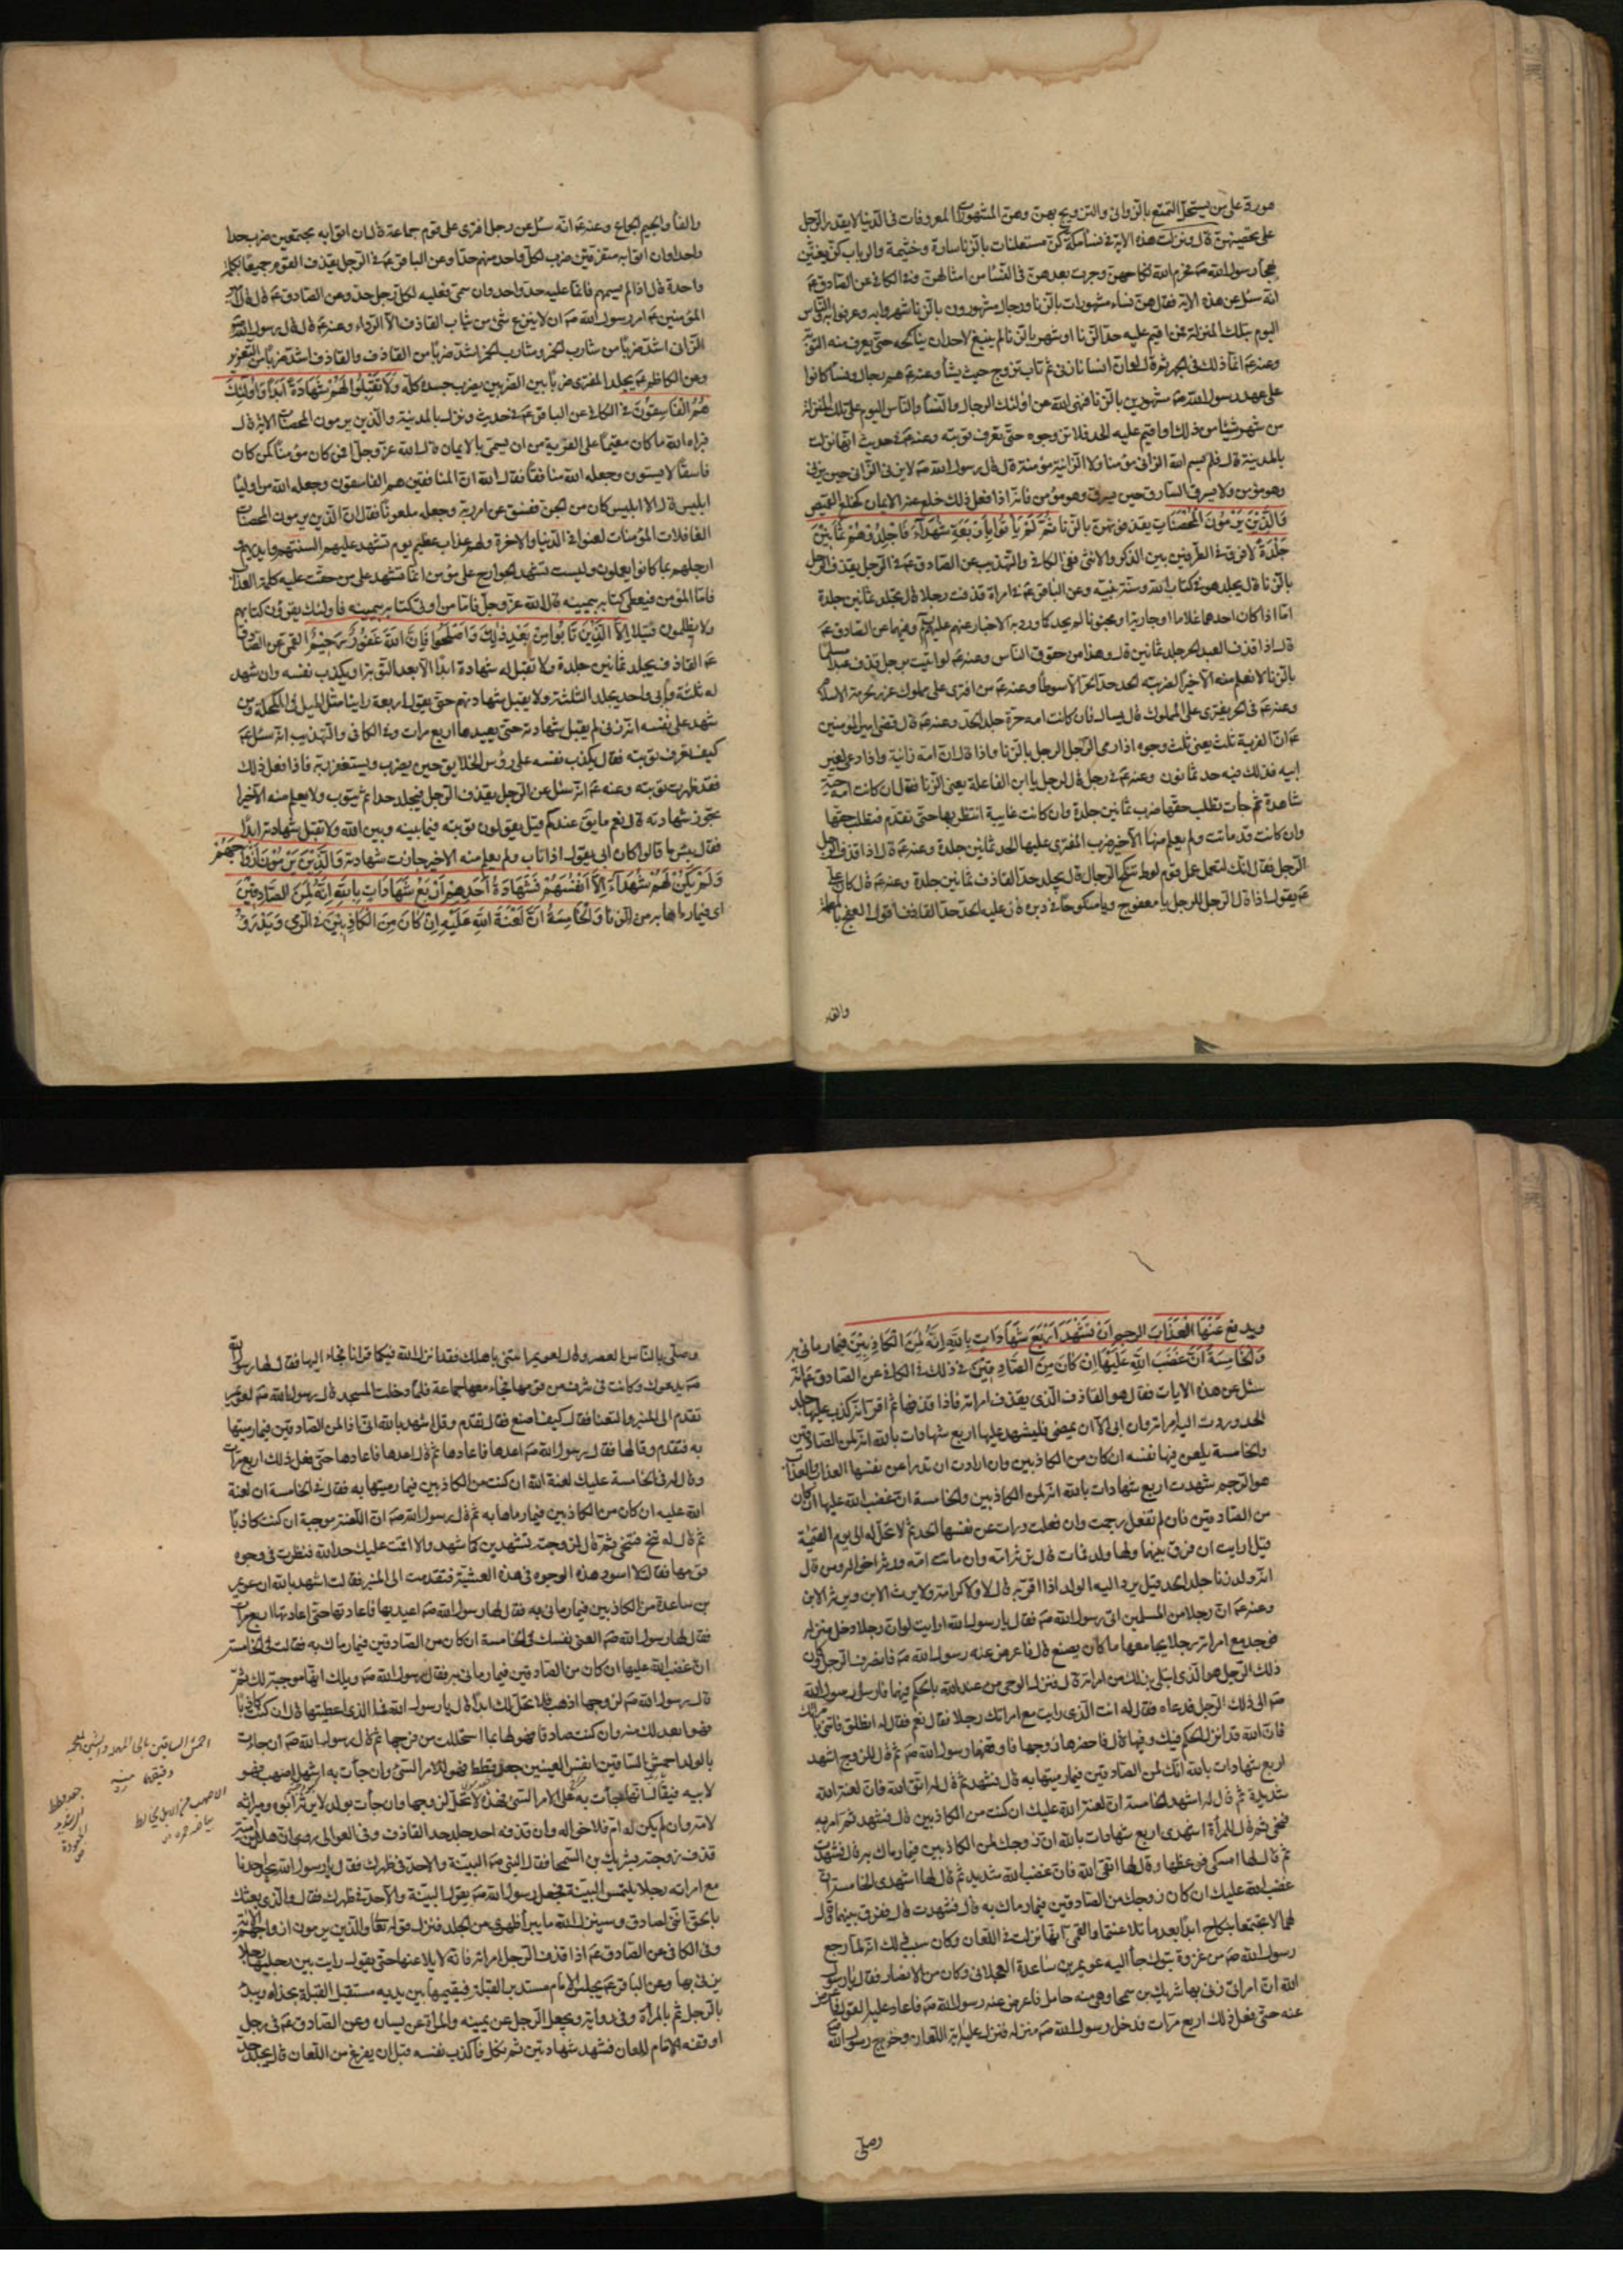 على من يستحل التمتع بالزواني والتزويج بهن وهن المشهورات المعروفات في الدنيا لا يقدر الرجل
على تحصينهن نزلت هذه الاية في نساء مكة كن مستعلنات بالزنا سارة وخثيمة والرباب كن يغنين
بهجاء رسول الله صم فحرم الله نكاحهن وجرت بعدهن في النساء من امثالهن وفي الكافي عن الصادق عم
انه سئل عن هذه الاية فقال هن نساء مشهورات بالزنا ورجال مشهورون بالزنا شهروا به وعرفوا به والناس
اليوم بتلك المنزلة فمن اقيم عليه حد الزنا او شهر بالزنا لم ينبغ لاحد ان يناكحه حتى يعرف منه التوبة
وعنه عم انما ذلك في الجهر ثم قال لو ان انسانا زنى ثم تاب تزوج حيث يشاء وعنه عم هم رجال ونساء كانوا
على عهد رسول الله صم مشهورين بالزنا فنهى الله عن اولئك الرجال والنساء والناس اليوم على تلك المنزلة
من شهر شيئا من ذلك او اقيم عليه الحد فلا تزوجوه حتى تعرف توبته وعنه عم في حديث انها نزلت
بالمدينة قال فلم يسم الله الزاني مؤمنا ولا الزانية مؤمنة قال قال رسول الله صم لا يزني الزاني حين يزني
وهو مؤمن ولا يسرق السارق حين يسرق وهو مؤمن فانه اذا فعل ذلك خلع عنه الايمان كخلع القميص
وَالَّذِينَ يَرْمُونَ الْمُحْصَنَاتِ يقذفونهن بالزنا ثُمَّ لَمْ يَأْتُوا بِأَرْبَعَةِ شُهَدَاءَ فَاجْلِدُوهُمْ ثَمَانِينَ
جَلْدَةً لا فرق في الطرفين بين الذكر والانثى ففي الكافي والتهذيب عن الصادق عم في الرجل يقذف الرجل
بالزنا قال يجلد هو في كتاب الله وسنة نبيه وعن الباقر عم في امراة قذفت رجلا قال تجلد ثمانين جلدة
اما اذا كان احدهما غلاما او جارية او مجنونا لم يحد كما وردت به الاخبار عنهم عليهم وفيهما عن الصادق عم
قال اذا قذف العبد الحر جلد ثمانين قال وهذا من حقوق الناس وعنه عم لو اتيت برجل قذف عبدا مسلما
بالزنا لا نعلم منه الا خيرا لضربته الحد حد الحر الا سوطا وعنه عم من افترى على مملوك عزر بحرمة الاسلام
وعنه عم في الحر يفتري على المملوك قال يسال فان كانت امه حرة جلد الحد وعنه عم قال قضى امير المؤمنين
عم ان الفرية ثلث يعني ثلث وجوه اذا رمى الرجل الرجل بالزنا واذا قال ان امه زانية واذا دعي لغير
ابيه فذلك فيه حد ثمانون وعنه عم في رجل قال لرجل يا ابن الفاعلة يعني الزنا فقال ان كانت امه حية
شاهدة ثم جاءت تطلب حقها ضرب ثمانين جلدة وان كانت غايبة انتظر بها حتى تقدم فتطلب حقها
وان كانت قد ماتت ولم يعلم منها الا خير ضرب المفتري عليها الحد ثمانين جلدة وعنه عم قال اذا قذف الرجل
الرجل فقال انك لتعمل عمل قوم لوط تنكح الرجال قال يجلد حد القاذف ثمانين جلدة وعنه عم قال كان علي
عم يقول اذا قال الرجل للرجل يا معفوج ويا منكوحا في دبره فان عليه الحد حد القاذف اقول العفج
والفاء والجيم الجماع وعنه عم انه سئل عن رجل افترى على قوم جماعة قال ان اتوا به مجتمعين ضرب حدا
واحدا وان اتوا به متفرقين ضرب لكل واحد منهم حدا وعن الباقر عم في الرجل يقذف القوم جميعا بكلمة
واحدة قال اذا لم يسمهم فانما عليه حد واحد وان سمى فعليه لكل رجل حد وعن الصادق عم قال قال امير
المؤمنين عم امر رسول الله صم ان لا ينزع شئ من ثياب القاذف الا الرداء وعنه عم قال قال رسول الله
الزاني اشد ضربا من شارب الخمر وشارب الخمر اشد ضربا من القاذف والقاذف اشد ضربا من التعزير
وعن الكاظم عم يجلد المفتري ضربا بين الضربين يضرب جسده كله وَلَا تَقْبَلُوا لَهُمْ شَهَادَةً أَبَدًا وَأُولَئِكَ
هُمُ الْفَاسِقُونَ في الكافي عن الباقر عم في حديث ونزل بالمدينة والذين يرمون المحصنات الاية قال
فبراه الله ما كان مقيما على الفرية من ان يسمى بالايمان قال الله عز وجل افمن كان مؤمنا كمن كان
فاسقا لا يستوون وجعله الله منافقا فقال الله ان المنافقين هم الفاسقون وجعله الله من اولياء
ابليس قال الا ابليس كان من الجن ففسق عن امر ربه وجعله ملعونا فقال ان الذين يرمون المحصنات
الغافلات المؤمنات لعنوا في الدنيا والاخرة ولهم عذاب عظيم يوم تشهد عليهم السنتهم وايديهم و
ارجلهم بما كانوا يعملون وليست تشهد الجوارح على مؤمن انما تشهد على من حقت عليه كلمة العذاب
فاما المؤمن فيعطى كتابه بيمينه قال الله عز وجل فاما من اوتي كتابه بيمينه فاولئك يقرؤن كتابهم
ولا يظلمون فتيلا إِلَّا الَّذِينَ تَابُوا مِنْ بَعْدِ ذَلِكَ وَأَصْلَحُوا فَإِنَّ اللَّهَ غَفُورٌ رَحِيمٌ القمي عن الصادق
عم القاذف يجلد ثمانين جلدة ولا تقبل له شهادة ابدا الا بعد التوبة او يكذب نفسه وان شهد
له ثلثة وابى واحد يجلد الثلثة ولا يقبل شهادتهم حتى يقول اربعة راينا مثل الميل في المكحلة ومن
شهد على نفسه انه زنى لم يقبل شهادته حتى يعيدها اربع مرات وفي الكافي والتهذيب انه سئل عم
كيف تعرف توبته فقال يكذب نفسه على رؤس الخلايق حين يضرب ويستغفر ربه فاذا فعل ذلك
فقد ظهرت توبته وعنه عم انه سئل عن الرجل يقذف الرجل فيجلد حدا ثم يتوب ولا يعلم منه الا خيرا
تجوز شهادته قال نعم ما يقال عندكم قيل يقولون توبته فيما بينه وبين الله ولا تقبل شهادته ابدا
فقال بئس ما قالوا كان ابي يقول اذا تاب ولم يعلم منه الا خير جازت شهادته وَالَّذِينَ يَرْمُونَ أَزْوَاجَهُمْ
وَلَمْ يَكُنْ لَهُمْ شُهَدَاءُ إِلَّا أَنْفُسُهُمْ فَشَهَادَةُ أَحَدِهِمْ أَرْبَعُ شَهَادَاتٍ بِاللَّهِ إِنَّهُ لَمِنَ الصَّادِقِينَ
اى فيما رماها به من الزنا وَالْخَامِسَةُ أَنَّ لَعْنَةَ اللَّهِ عَلَيْهِ إِنْ كَانَ مِنَ الْكَاذِبِينَ في الرمي وَيَدْرَؤُ
ويدفع عَنْهَا الْعَذَابَ الرجم أَنْ تَشْهَدَ أَرْبَعَ شَهَادَاتٍ بِاللَّهِ إِنَّهُ لَمِنَ الْكَاذِبِينَ فيما رماني به
وَالْخَامِسَةَ أَنَّ غَضَبَ اللَّهِ عَلَيْهَا إِنْ كَانَ مِنَ الصَّادِقِينَ في ذلك في الكافي عن الصادق عم انه
سئل عن هذه الايات فقال هو القاذف الذي يقذف امراته فاذا قذفها ثم اقر انه كذب عليها جلد
الحد وردت اليه امراته وان ابى الا ان يمضي فليشهد عليها اربع شهادات بالله انه لمن الصادقين
والخامسة يلعن فيها نفسه ان كان من الكاذبين وان ارادت ان تدرا عن نفسها العذاب والعذاب
هو الرجم شهدت اربع شهادات بالله انه لمن الكاذبين والخامسة ان غضب الله عليها ان كان
من الصادقين فان لم تفعل رجمت وان فعلت درات عن نفسها الحد ثم لا تحل له الى يوم القيمة
قيل ارايت ان فرق بينهما ولها ولد فمات قال ترثه امه وان ماتت امه ورثه اخواله ومن قال
انه ولد زنا جلد الحد قيل يرد اليه الولد اذا اقر به قال لا ولا كرامة ولا يرث الابن ويرثه الابن
وعنه عم ان رجلا من المسلمين اتى رسول الله صم فقال يا رسول الله ارايت لو ان رجلا دخل منزله
فوجد مع امراته رجلا يجامعها ما كان يصنع قال فاعرض عنه رسول الله صم فانصرف الرجل وكان
ذلك الرجل هو الذي ابتلي بذلك من امراته قال فنزل الوحي من عند الله بالحكم فيهما فارسل رسول الله
صم الى ذلك الرجل فدعاه فقال له انت الذي رايت مع امراتك رجلا فقال نعم فقال له انطلق فاتني بامراتك
فان الله قد انزل الحكم فيك وفيها قال فاحضرها زوجها فاوقفهما رسول الله صم ثم قال للزوج اشهد
اربع شهادات بالله انك لمن الصادقين فيما رميتها به قال فشهد ثم قال له اتق الله فان لعنة الله
شديدة ثم قال له اشهد الخامسة ان لعنة الله عليك ان كنت من الكاذبين قال فشهد ثم امر به
فنحي ثم قال للمراة اشهدي اربع شهادات بالله ان زوجك لمن الكاذبين فيما رماك به قال فشهدت
ثم قال لها امسكي فوعظها وقال لها اتقي الله فان غضب الله شديد ثم قال لها اشهدي الخامسة ان
غضب الله عليك ان كان زوجك من الصادقين فيما رماك به قال فشهدت قال ففرق بينهما وقال
لهما لا تجتمعا بنكاح ابدا بعد ما تلاعنتما والقمي انها نزلت في اللعان وكان سبب ذلك انه لما رجع
رسول الله صم من غزوة تبوك جاء اليه عويمر بن ساعدة العجلاني وكان من الانصار فقال يا رسول
الله ان امراتي زنى بها شريك بن سمحا وهي منه حامل فاعرض عنه رسول الله صم فاعاد عليه القول فاعرض
عنه حتى فعل ذلك اربع مرات فدخل رسول الله صم منزله فنزل عليه اية اللعان وخرج رسول الله
وصلى
وصلى بالناس العصر وقال لعويمر ائتني باهلك فقد انزل الله فيكما قرانا فجاء اليها فقال لها رسول الله
صم يدعوك وكانت في شرف من قومها فجاء معها جماعة فلما دخلت المسجد قال رسول الله صم لعويمر
تقدم الى المنبر والتعنا فقال كيف اصنع فقال تقدم وقل اشهد بالله اني اذا لمن الصادقين فيما رميتها
به فتقدم وقالها فقال رسول الله صم اعدها فاعادها ثم قال اعدها فاعادها حتى فعل ذلك اربع مرات
وقال له في الخامسة عليك لعنة الله ان كنت من الكاذبين فيما رميتها به فقال في الخامسة ان لعنة
الله عليه ان كان من الكاذبين فيما رماها به ثم قال رسول الله صم ان اللعنة موجبة ان كنت كاذبا
ثم قال له تنح فتنحى ثم قال لزوجته تشهدين كما شهد والا اقمت عليك حد الله فنظرت في وجوه
قومها فقالت لا اسود هذه الوجوه في هذه العشية فتقدمت الى المنبر فقالت اشهد بالله ان عويمر
بن ساعدة من الكاذبين فيما رماني به فقال لها رسول الله صم اعيديها فاعادتها حتى اعادتها اربع مرات
فقال لها رسول الله صم العني نفسك في الخامسة ان كان من الصادقين فيما رماك به فقالت في الخامسة
ان غضب الله عليها ان كان من الصادقين فيما رماني به فقال رسول الله صم ويلك انها موجبة لك ثم
قال رسول الله صم لزوجها اذهب فلا تحل لك ابدا قال يا رسول الله فمالي الذي اعطيتها قال ان كنت كاذبا
فهو ابعد لك منه وان كنت صادقا فهو لها بما استحللت من فرجها ثم قال رسول الله صم ان جاءت
بالولد احمش الساقين انفس العينين جعد قطط فهو للامر السيئ وان جاءت به اشهل اصهب فهو
لابيه فيقال انها جاءت به على الامر السيئ فهذه لا تحل لزوجها وان جاءت بولد لا يرثه ابوه وميراثه
لامه وان لم يكن له ام فلاخواله وان قذفه احد جلد حد القاذف وفي العوالي روى ان هلال بن امية
قذف زوجته بشريك بن السمحا فقال النبي صم البينة والا حد في ظهرك فقال يا رسول الله يجد احدنا
مع امراته رجلا يلتمس البينة فجعل رسول الله صم يقول البينة والا حد في ظهرك فقال والذي بعثك
بالحق انني لصادق وسينزل الله ما يبرأ ظهري من الجلد فنزل قوله تعالى والذين يرمون ازواجهم الاية
وفي الكافي عن الصادق عم اذا قذف الرجل امراته فانه لا يلاعنها حتى يقول رايت بين رجليها رجلا
يزني بها وعن الباقر عم يجلس الامام مستدبر القبلة فيقيمهما بين يديه مستقبل القبلة بحذاه ويبدأ
بالرجل ثم بالمرأة وفي رواية ويجعل الرجل عن يمينه والمراة عن يساره وعن الصادق عم في رجل
اوقفه الامام للعان فشهد شهادتين ثم نكل فاكذب نفسه قبل ان يفرغ من اللعان قال يجلد حد